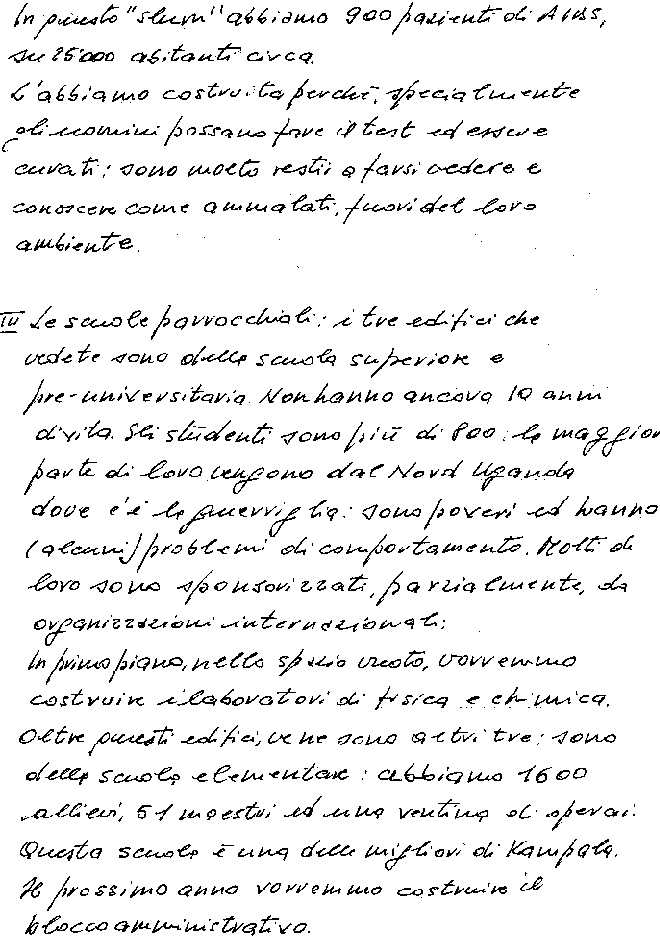 In questo "slum" abbiamo 900 pazienti di AIDS,
su 25'000 abitanti circa.
L'abbiamo costruita perché, specialmente
gli uomini possano fare il test ed essere
curati; sono molto restii a farsi vedere e
conoscere come ammalati, fuori del loro
ambiente.
III Le scuole parrocchiali: i tre edifici che
vedete sono della scuola superiore e
pre-universitaria. Non hanno ancora 10 anni
di vita. Gli studenti sono più di 800: la maggior
parte di loro vengono dal Nord Uganda
dove c'è la guerriglia: sono poveri ed hanno
(alcuni) problemi di comportamento. Molti di
loro sono sponsorizzati, parzialmente, da
organizzazioni internazionali;
In primo piano, nello spazio vuoto, vorremmo
costruire i laboratori di fisica e chimica.
Oltre questi edifici, ve ne sono altri tre: sono
della scuola elementare: abbiamo 1600
allievi, 51 maestri ed una ventina di operai.
Questa scuola è una delle migliori di Kampala.
Il prossimo anno vorremmo costruire il
blocco amministrativo.